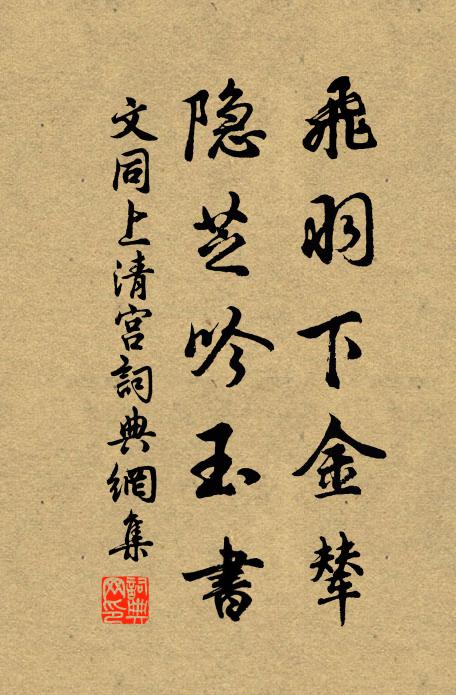 飛羽下金輦
隐芝吟玉書
文同上清宮詞典網集
詞典網印